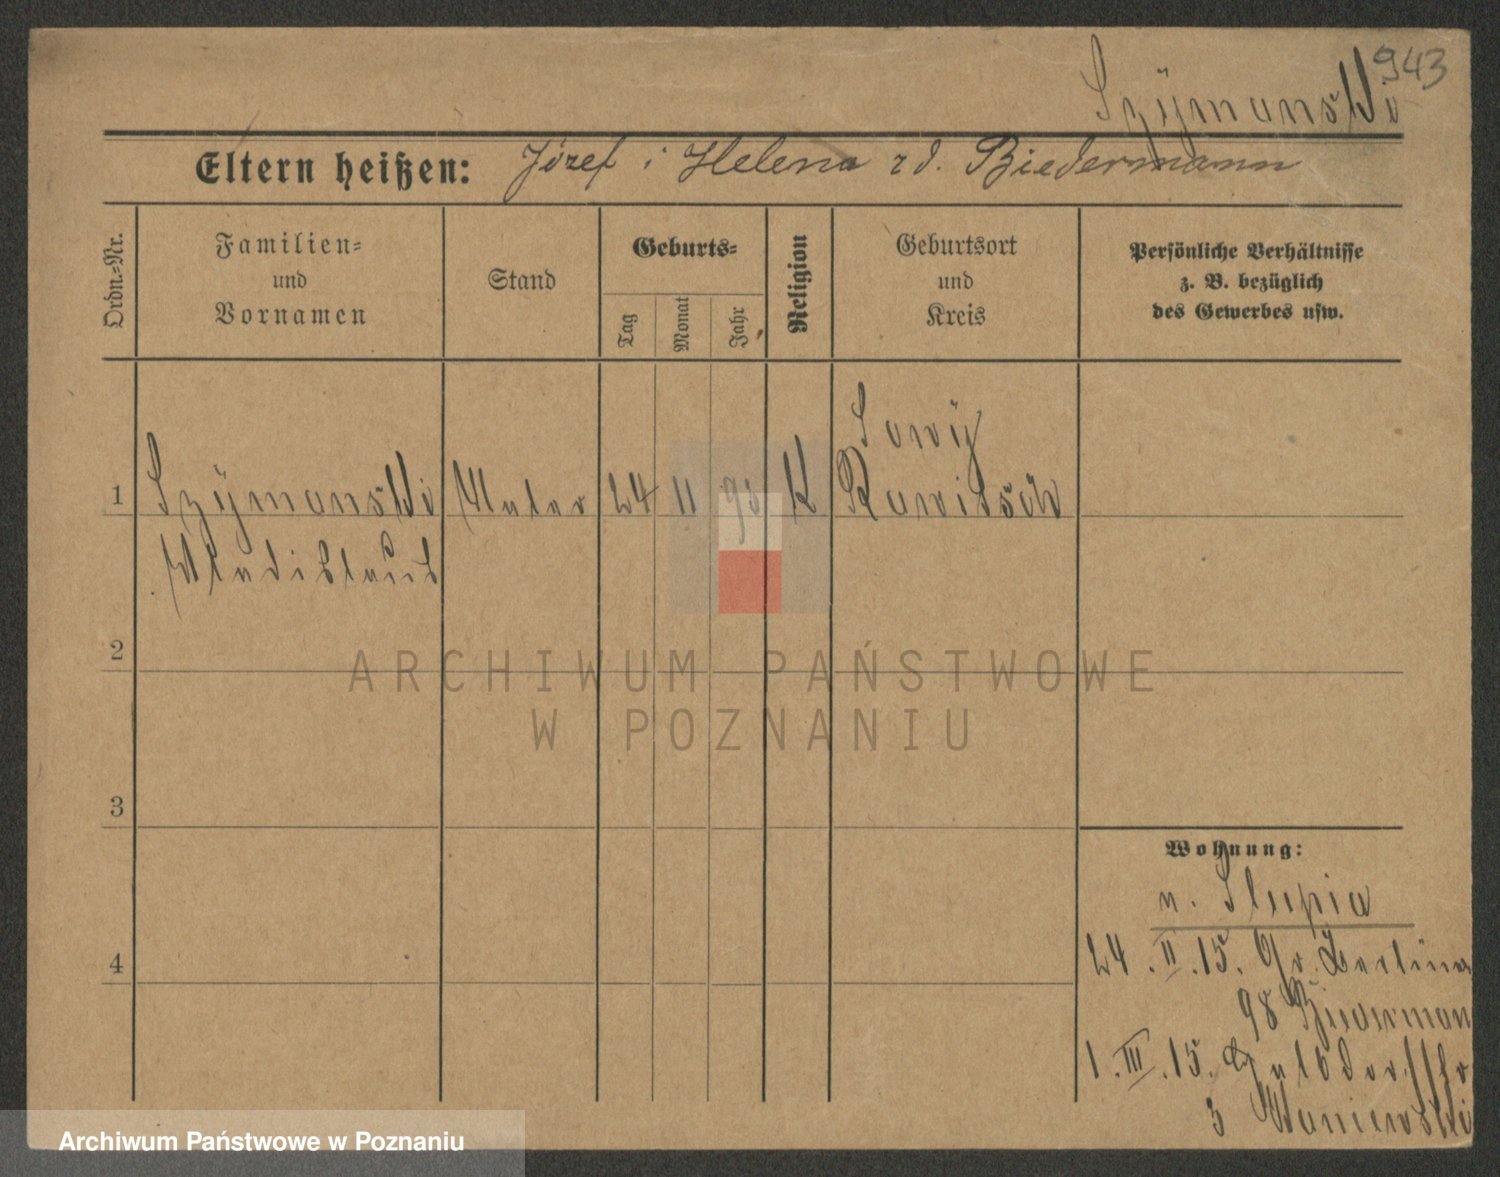 943
Szymanski
Eltern heißen: Józef i Helena zd. Biedermann
Ordn.-Nr.
Familien-
und
Vornamen
Stand
Geburts-
Tag
Monat
Jahr
Religion
Geburtsort
und
Kreis
Persönliche Verhältnisse
z. B. bezüglich
des Gewerbes usw.
Sowy
1 Szymanski Maler 24 11 93 K Rawitsch
Wladislaus
2
ARCHIWUM PAŃSTWOWE
W POZNANIU
3
Wohnung:
n. Slupia
4
24.II.15. Gr. Berliner
98 Biederman
1.III.15.
3
Archiwum Państwowe w Poznaniu